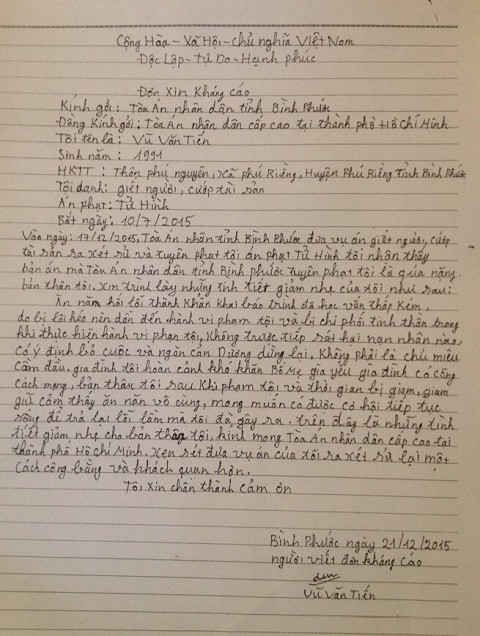 Cộng Hòa - Xã Hội - chủ nghĩa Việt Nam
Độc Lập - Tự Do - Hạnh phúc
Đơn Xin Kháng cáo
Kính gởi : Tòa Án nhân dân tỉnh Bình Phước
Đồng Kính gởi : Tòa Án nhân dân cấp cao tại thành phố Hồ Chí Minh
Tôi tên là : Vũ Văn Tiến
Sinh năm : 1991
HKTT : Thôn phú nguyên, xã phú Riềng, Huyện Phú Riềng tỉnh Bình Phước
Tội danh : giết người, cướp tài sản
Án phạt : Tử Hình
Bắt ngày : 10/7/2015
Vào ngày : 17/12/2015, Tòa Án nhân tỉnh Bình Phước đưa vụ án giết người, cướp
tài sản ra xét xử và tuyên phạt tôi án phạt Tử Hình tôi nhận thấy
bản án mà Tòa Án nhân dân tỉnh Bình phước tuyên phạt tôi là qúa nặng
bản thân tôi, xin trình bày những tình tiết giảm nhẹ của tôi như sau :
Ăn năn hối lỗi thành Khẩn Khai báo trình độ học vấn thấp Kém,
do bị lôi kéo nên dẫn đến hành vi phạm tội và bị chi phối tinh thần trong
khi thực hiện hành vi phạm tội, Không trực tiếp sát hại nạn nhân nào,
có ý định bỏ cuộc và ngăn cản Dương dừng lại, Không phải là chủ mưu
cầm đầu, gia đình tôi hoàn cảnh khó khăn Bố Mẹ già yếu gia đình có công
cách mạng, bản thân tôi sau Khi phạm tội và thời gian bị giam, giam
giữ cảm thấy ăn năn vô cùng, mong muốn có được cơ hội tiếp tục
sống để trả lại lỗi lầm mà tôi đã gây ra. trên đây là những tình
tiết giảm nhẹ cho bản thân tôi, kính mong Tòa Án nhân dân cấp cao tại
thành phố Hồ Chí Minh. xem xét đưa vụ án của tôi ra xét xử lại một
Cách công bằng và khách quan hơn.
Tôi Xin chân thành cảm ơn
Bình Phước ngày 21/12/2015
người viết đơn kháng cáo
Vũ Văn Tiến